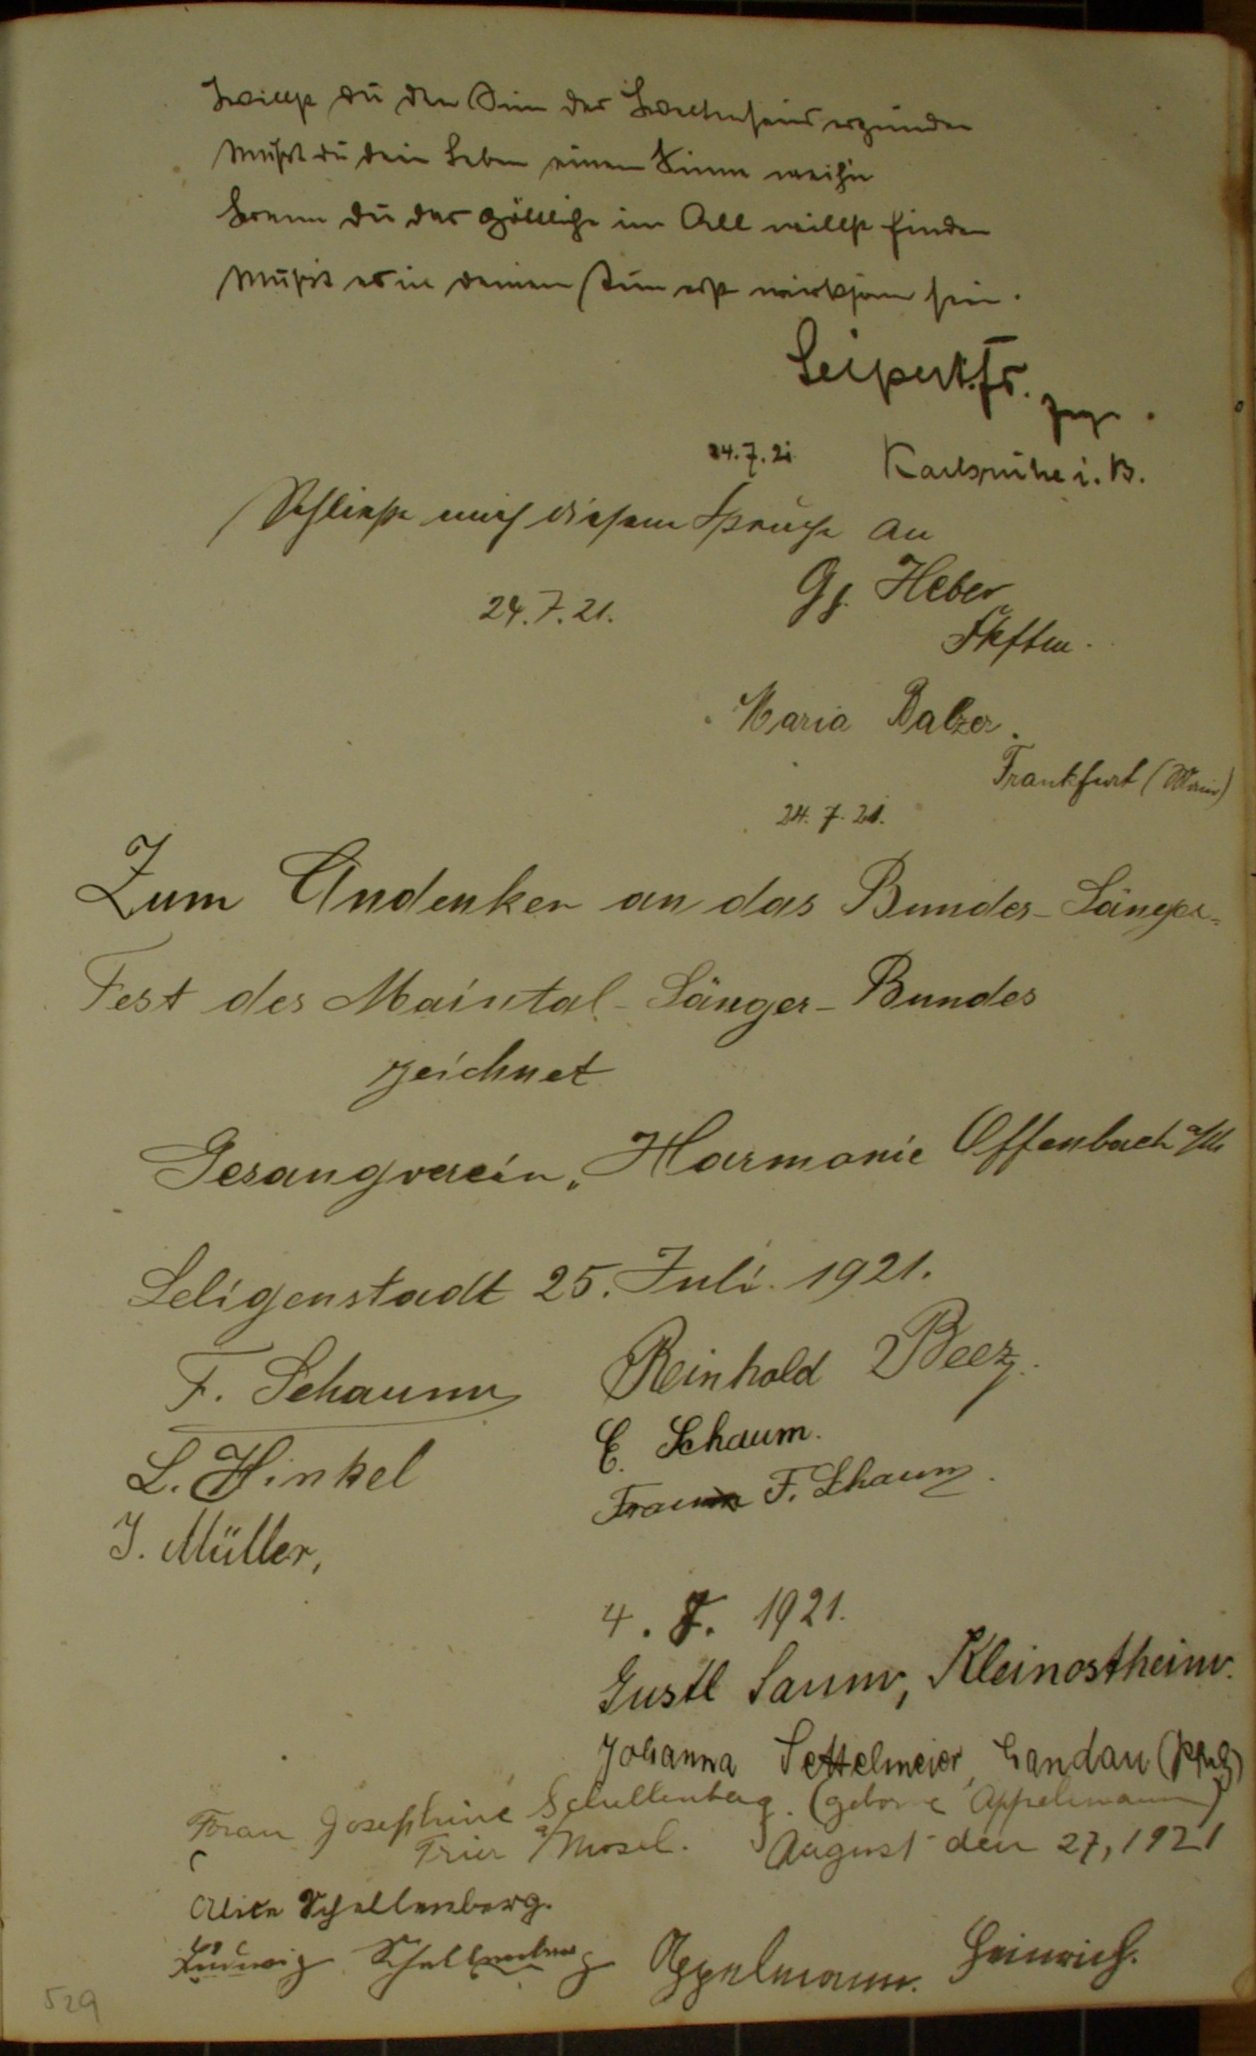 Willst du den Sinn des Weltenseins ergründen
Mußt du dein Leben einem Sinne weih'n
Wenn du das göttliche im All willst finden
Mußt es in deinem Sinn erst wirksam sein.
Seipert. Fr.
24.7.21 Karlsruhe i. B.
Schließe mich diesem Spruche an
24.7.21. Gg. Heber
Maria Balzer.
Frankfurt (Main)
24. 7. 21.
Zum Andenken an das Bundes-Sänger-
Fest des Maintal-Sänger-Bundes
zeichnet
Gesangverein „Harmonie Offenbach a/M
Seligenstadt 25. Juli 1921.
F. Schaum Reinhold Beez.
L. Hinkel E. Schaum.
J. Müller, Frau F. Schaum.
4. 8. 1921.
Gustl Saum, Kleinostheim.
Johanna Settelmeier, Landau (Pfalz)
Frau Josephine Schellenberg. (geborne Appelmann)
Trier a/Mosel. August den 27, 1921
Alice Schellenberg.
Ludwig Schellenberg Appelmann. Heinrich.
529